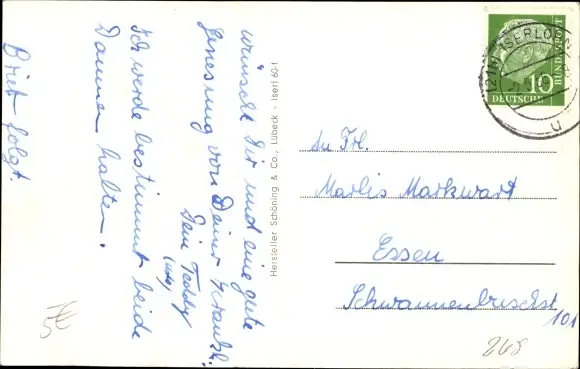 wünscht Dir und eine gute
Genesung von Deiner Krankh.
Dein Teddy
Ich werde bestimmt beide
Daumen halten.
Brief folgt.
Hersteller Schöning & Co., Lübeck - Iserl 60-1
ISERLO
(21b)
u
10
DEUTSCHE
BUNDESPOST
An Frl.
Marlis Markwart
Essen
Schwannenbuschst
101
268